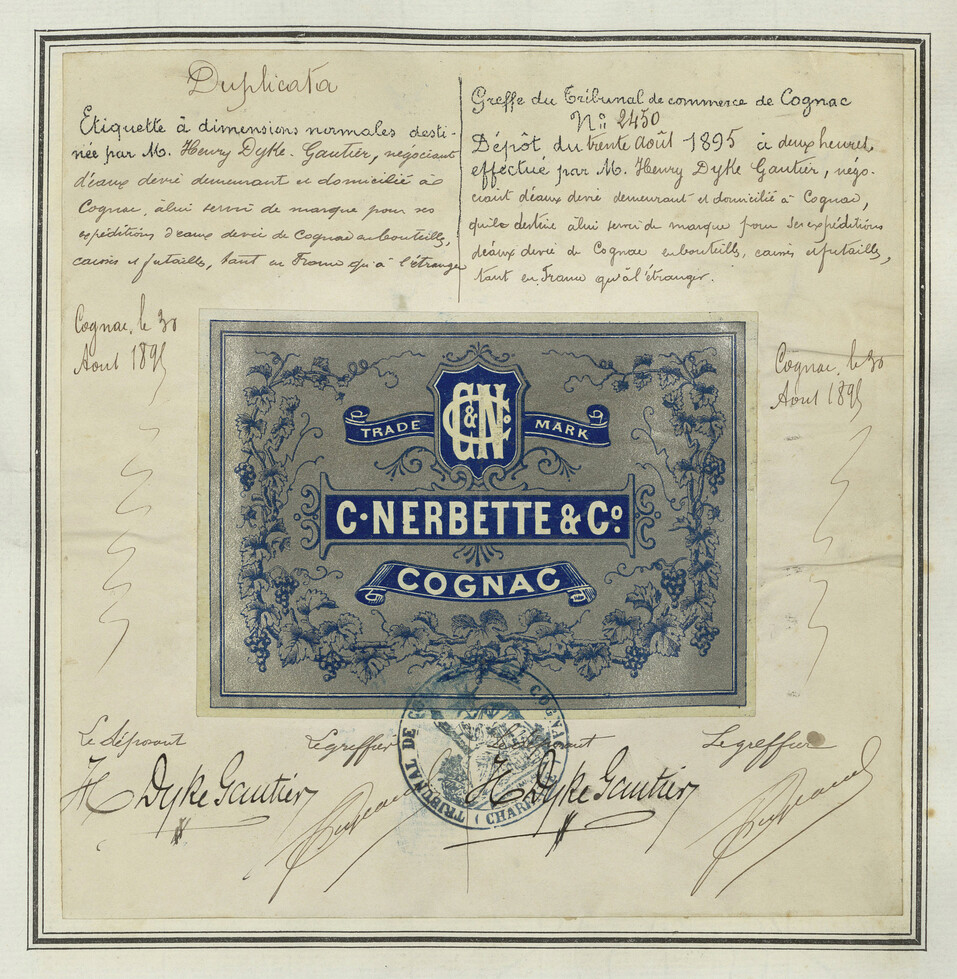 Duplicata
Etiquette à dimensions normales desti-
née par M. Henry Dyke-Gautier, négociant
d'eaux de vie demeurant et domicilié à
Cognac, à lui servir de marque pour ses
expéditions d'eaux de vie de Cognac en bouteilles,
caisses et futailles, tant en France qu'à l'étranger
Cognac, le 30
Août 1895
Greffe du Tribunal de commerce de Cognac
N° 2450
Dépôt du trente Août 1895 à deux heures
effectué par M. Henry Dyke Gautier, négo-
ciant d'eaux de vie demeurant et domicilié à Cognac,
qu'il a destiné à lui servir de marque pour ses expéditions
d'eaux de vie de Cognac en bouteilles, caisses et futailles,
tant en France qu'à l'étranger.
Cognac, le 30
Août 1895
C N & Co
TRADE MARK
C. NERBETTE & Co.
COGNAC
Le déposant
Le greffier
H Dyke Gautier
Le déposant
Le greffier
H Dyke Gautier
TRIBUNAL DE COGNAC (CHARENTE